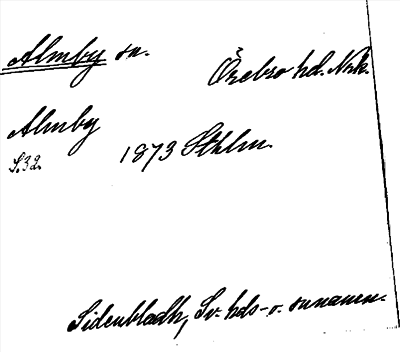 Almby sn.
Örebro hd. Nrk.
Almby
S.32. 1873 Sthlm.
Sidenbladh, Sv. hds- o. sn namn.